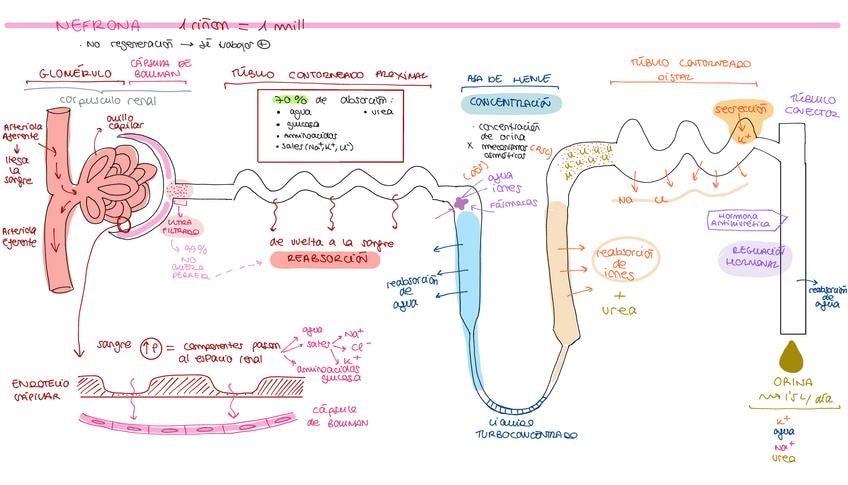 NEFRONA 1 riñon = 1 mill
· No regeneración → sí trabajar +
GLOMÉRULO
CÁPSULA DE
BOWMAN
corpúsculo renal
Arteriola
Aferente
↓
llega
la
sangre
Arteriola
Eferente
ovillo
capilar
ULTRA
FILTRADO
↓ 99%
NO
QUIERO
PERDER
TÚBULO CONTORNEADO PROXIMAL
70% de absorción:
• agua
• glucosa
• aminoácidos
• sales (Na+, K+, Cl-)
• urea
de vuelta a la sangre
REABSORCIÓN
ASA DE HENLE
CONCENTRACIÓN
· concentración
de orina
x mecanismos
osmóticos
agua
iones
Fármacos
reabsorción
de
agua
Líquido
TURBOCONCENTRADO
reabsorción
de
iones
+
urea
TÚBULO CONTORNEADO
DISTAL
secreción
K+
Na Cl
TÚBULO
COLECTOR
Hormona
Antidiurética
REGULACIÓN
HORMONAL
reabsorción
de
agua
ORINA
1'5 L / día
K+
agua
Na+
urea
sangre ↑P = componentes pasan
al espacio renal
agua
sales
Na+
Cl-
K+
aminoácidos
glucosa
ENDOTELIO
CAPILAR
CÁPSULA
DE BOWMAN